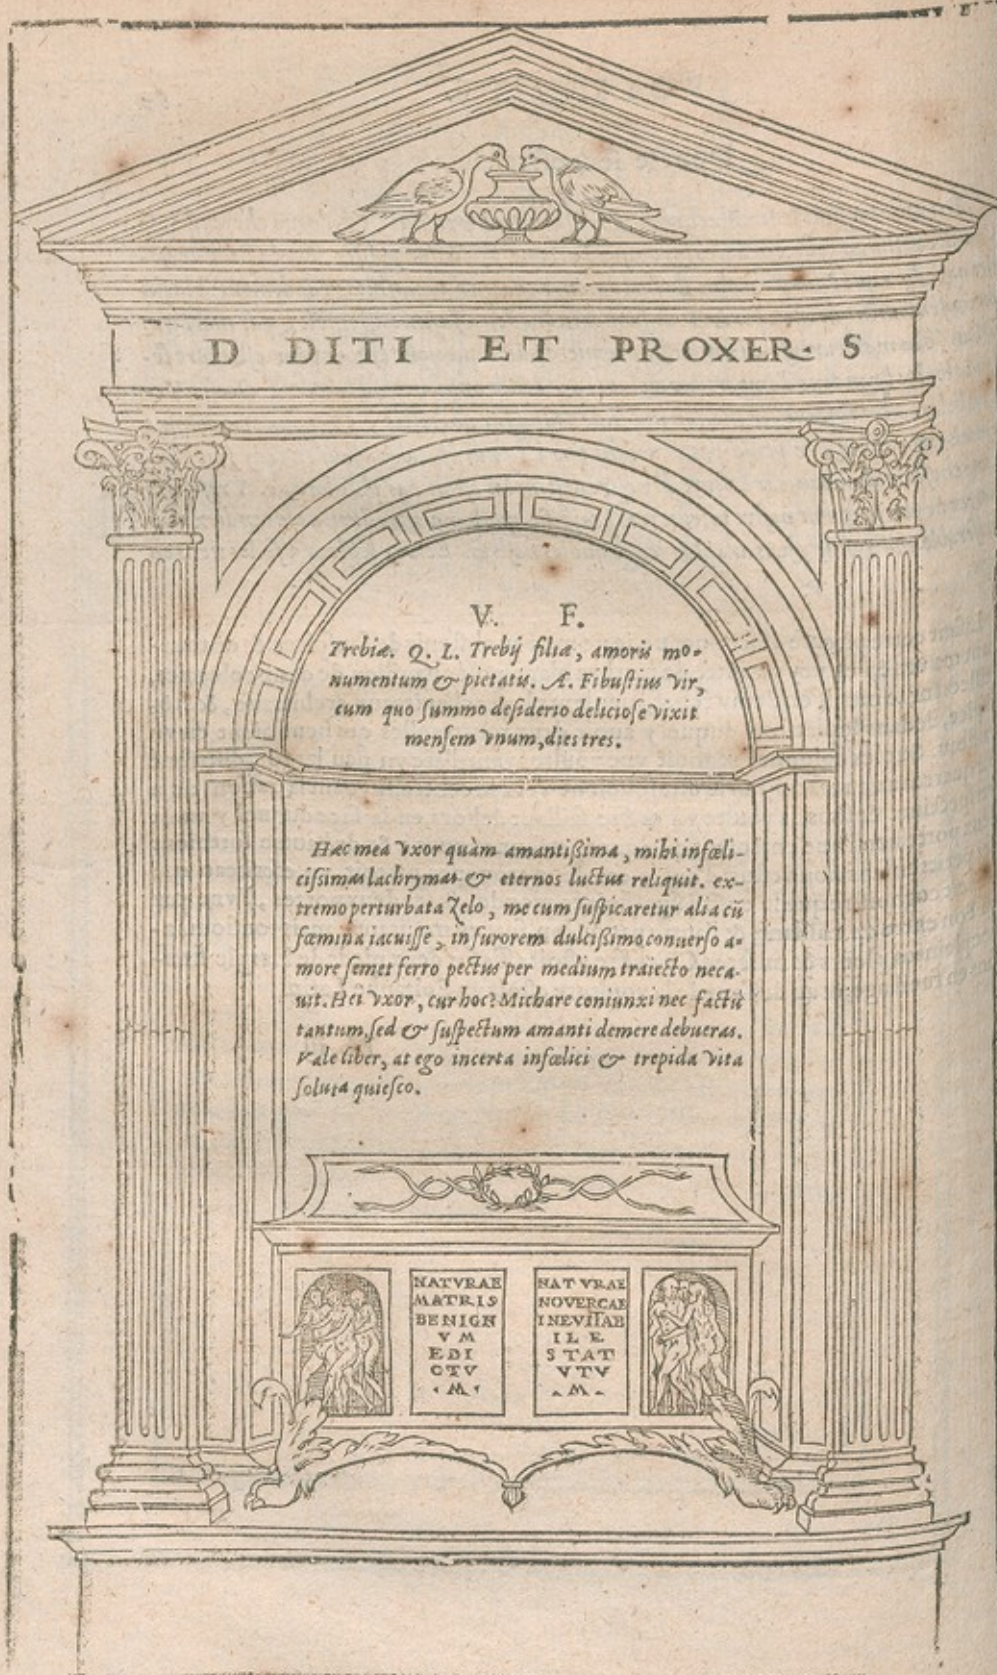 D DITI ET PROXER. S
V. F.
Trebiæ. Q. L. Trebij filiæ, amoris mo-
numentum & pietatis. Æ. Fibustius vir,
cum quo summo desiderio deliciose vixit
mensem vnum, dies tres.
Hæc mea vxor quàm amantißima, mihi infœli-
cissimas lachrymas & eternos luctus reliquit. ex-
tremo perturbata zelo, me cum suspicaretur alia cū
fœmina iacuisse, in furorem dulcißimo conuerso a-
more semet ferro pectus per medium traiecto neca-
uit. Hei vxor, cur hoc? Michare coniunxi nec factū
tantum, sed & suspectum amanti demere debueras.
Vale liber, at ego incerta infœlici & trepida vita
soluta quiesco.
NATVRAE
MATRIS
BENIGN
VM
EDI
CTV
. M .
NATVRAE
NOVERCAE
INEVITAB
ILE
STAT
VTV
. M .